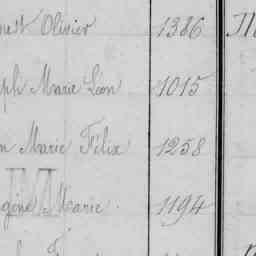 nest Olivier 1386
eph Marie Léon 1015
n Marie Félix 1258
gène Marie. 1194